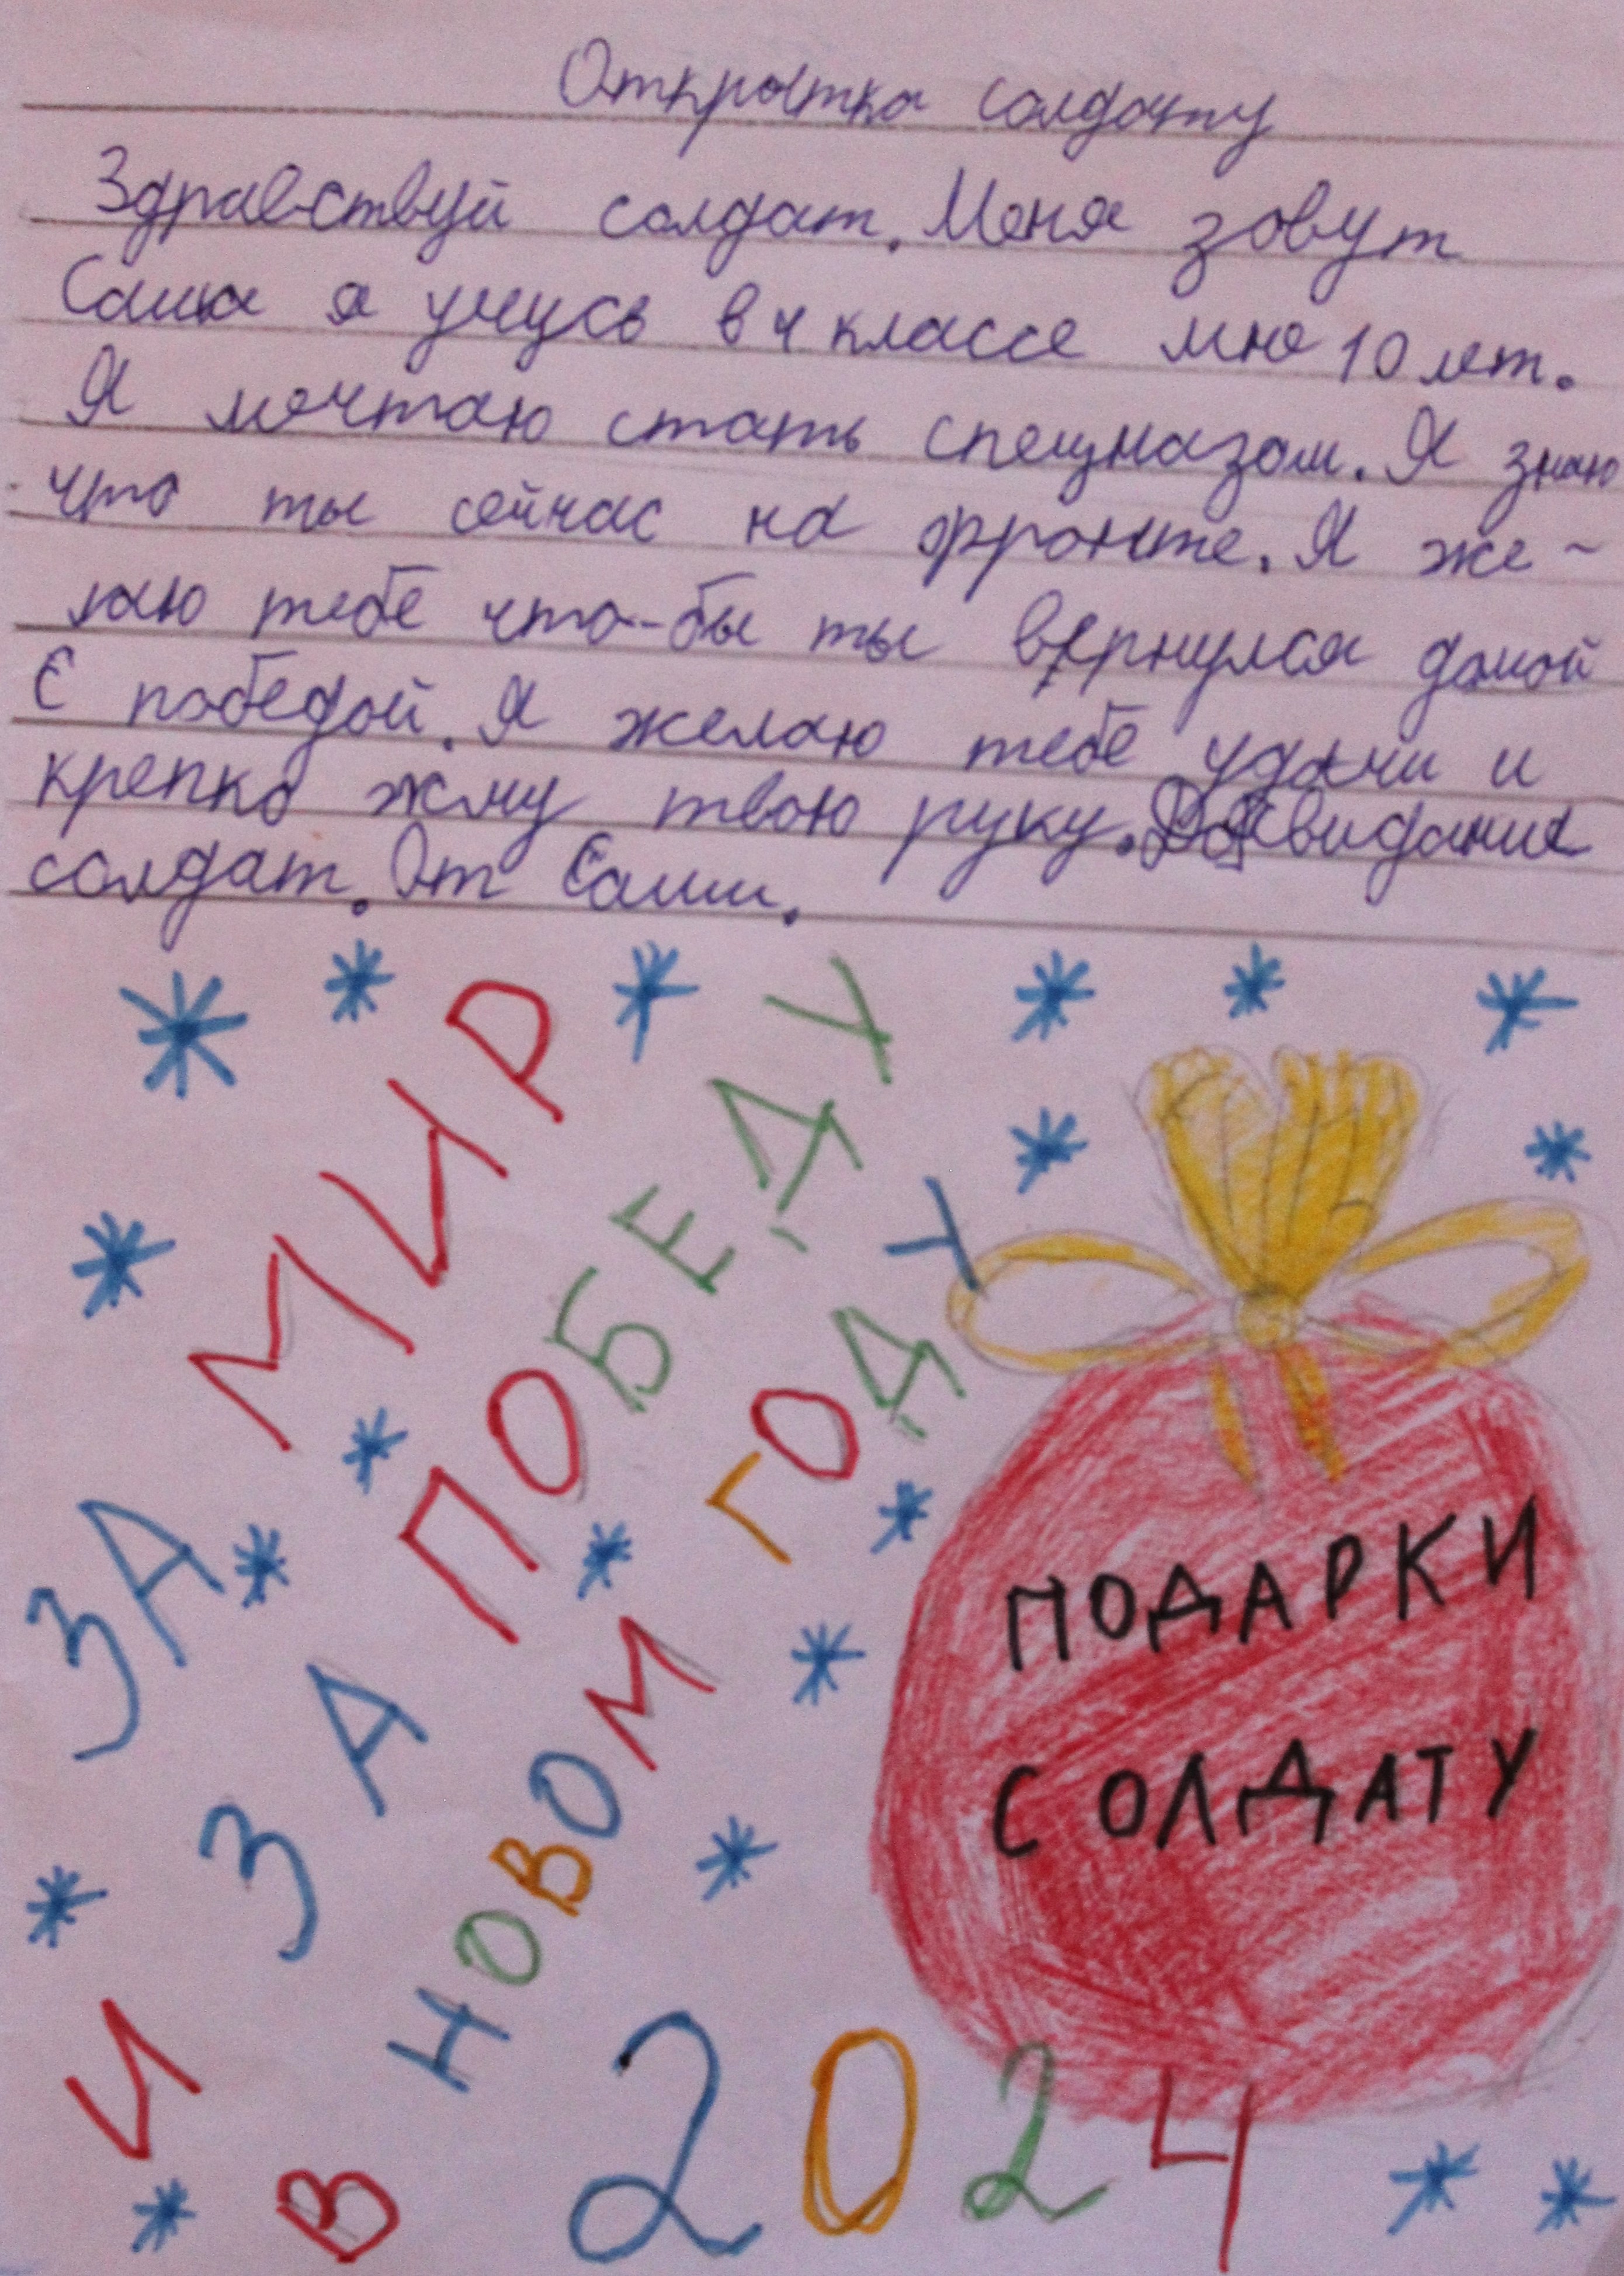 Открытка солдату
Здравствуй солдат. Меня зовут
Саша я учусь в 4 классе мне 10 лет.
Я мечтаю стать спецназом. Я знаю
что ты сейчас на фронте. Я же-
лаю тебе что-бы ты вернулся домой
с победой. Я желаю тебе удачи и
крепко жму твою руку. Досвидания
солдат. От Саши.
ЗА МИР
И ЗА ПОБЕДУ
В НОВОМ ГОДУ
2024
ПОДАРКИ
СОЛДАТУ